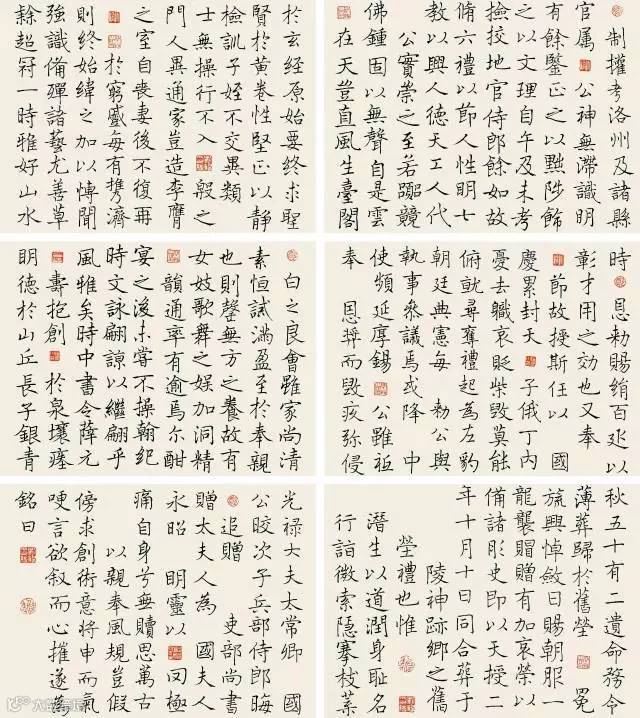 制權考洛州及諸縣
官属 公神無滯識明
有餘鑒正之以黜陟飾
之以文理自午及未考
撿挍地官侍郎餘如故
脩六禮以節人性明七
教以興人德天工人代
公實崇之至若躑競
佛鍾固以無聲自是雲
在天豈直風生臺閣
於玄經原始要終求聖
賢於黃卷性堅正以静
檢訓子姪不交異類
士無操行不入 殷之
門人異通家豈造李膺
之室自喪妻後不復再
於窮慼每有携濟
則終始緯之加以博聞
強識備殫諸藝尤善草
隸超冠一時雅好山水
時 恩勑賜絹百疋以
彰才用之効也又奉
節故授斯任以 國
慶累封天 子俄丁内
憂去職哀貶柴毀莫能
俯就尋奪禮起為左豹
朝廷典憲每 勑公與
執事參議焉或降中
使頻延厚錫 公雖祗
奉 恩奬而毀疚弥侵
白之良會雖家尚清
素恒誡滿盈至於奉親
也則罄無方之養故有
女妓歌舞之娱加洞精
韻通率有逾焉尓酣
宴之後未嘗不操翰紀
時文詠翩諒以繼翩乎
風雅矣時中書令薛元
壽抱創 於泉壤瘞
明德於山丘長子銀青
秋五十有二遺命務令
薄葬歸於舊塋 冕
旒興悼斂日賜朝服一
龍襲賵贈有加哀榮以
備諸彤史即以天授二
年十月十日同合葬于
陵神跡鄉之舊
塋禮也惟
潛生以道潤身恥名
行詣微索隠搴枝葉
光禄大夫太常卿 國
公晈次子兵部侍郎晦
追贈 吏部尚書
贈太夫人為 國夫人
永昭 明靈以 罔極
痛自身兮無贖思萬古
以親奉風規豈假
傍求創術意將申而氣
哽言欲叙而心摧遂為
銘曰